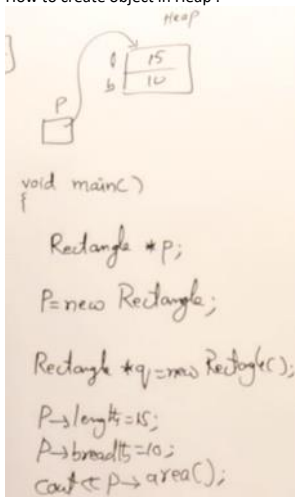 How to create object in Heap ?
Heap
l 15
b 10
P
void main()
{
Rectangle *p;
P=new Rectangle;
Rectangle *q=new Rectangle();
P→length=15;
P→breadth=10;
cout << P→area();